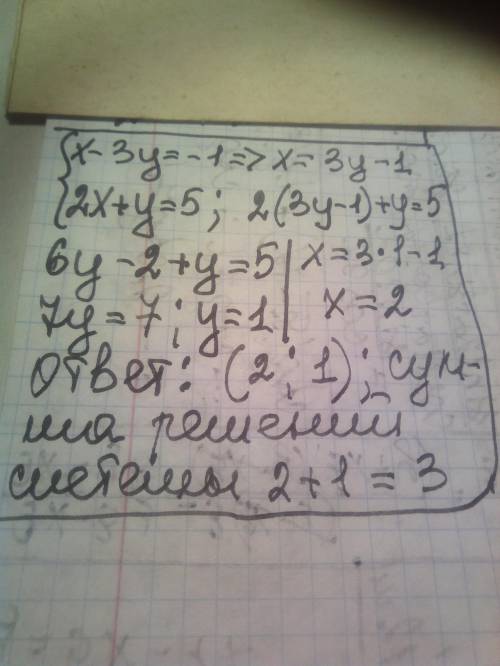 {x-3y=-1=>x=3y-1
{2x+y=5; 2(3y-1)+y=5
6y-2+y=5 | x=3·1-1
7y=7; y=1 | x=2
Ответ: (2; 1); сум-
ма решений
системы 2+1=3